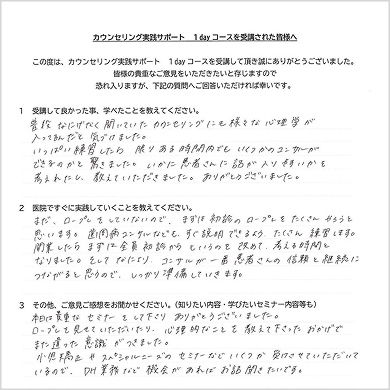 カウンセリング実践サポート　１dayコースを受講された皆様へ
この度は、カウンセリング実践サポート　１dayコースを受講して頂き誠にありがとうございました。
皆様の貴重なご意見をいただきたいと存じますので
恐れ入りますが、下記の質問へご回答いただければ幸いです。
1　受講して良かった事、学べたことを教えてください。
普段なにげなく聞いていたカウンセリングにも様々な心理学が
入ってるんだと気づけました。
いっぱい練習したら限りある時間内でもいくつかのコンサルが
できるのかと驚きました。いかに患者さんに話が入りやすいかを
考えれたし、教えていただきました。ありがとうございました。
2　医院ですぐに実践していくことを教えてください。
まだ、ロープレをしていないので、まずは初診のロープレをたくさんやろうと
思います。歯周病コンサルなども、すぐ説明できるよう、たくさん練習します。
開業したらまずは全員初診からというのを改めて、考える時間と
なりました。そしてなにより、コンサルが一番患者さんの信頼と継続に
つながると思うので、しっかり準備していきます。
3　その他、ご意見ご感想をお聞かせください。（知りたい内容・学びたいセミナー内容等も）
本日は貴重なセミナーをして下さりありがとうございました。
ロープレを見せていただいたり、心理的なことを教えて下さったおかげで
また違った意識がつきました。
小児矯正やスペシャルニーズのセミナーなどいくつか受けさせていただいて
いるので、DH業務など機会があればお話聞きたいです。